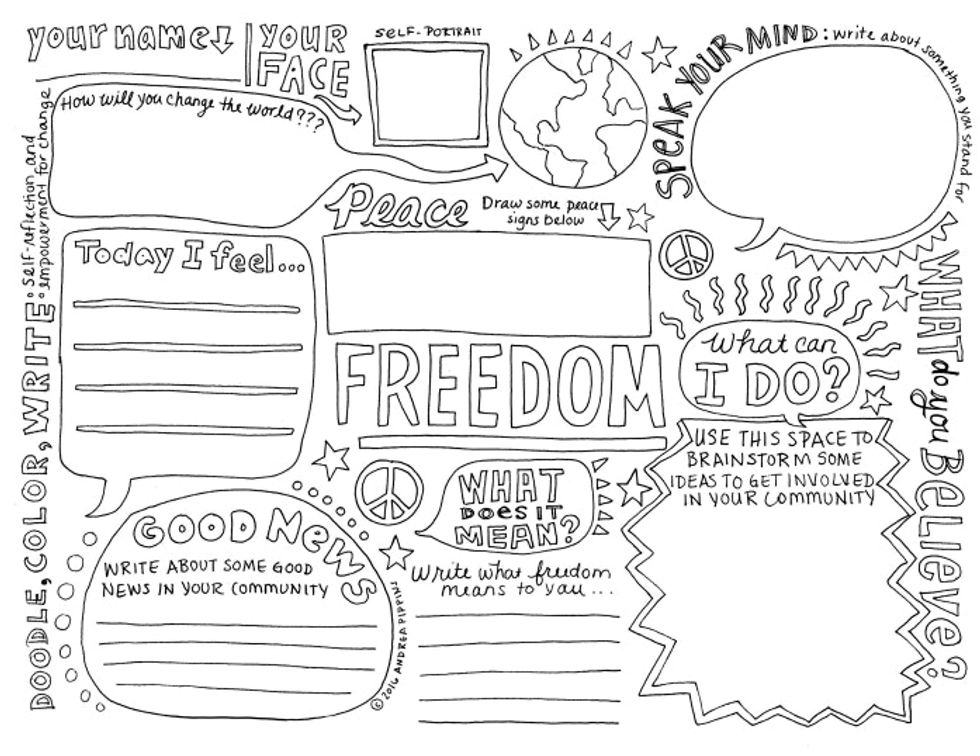 your name
YOUR
FACE
SELF-PORTRAIT
SPEAK YOUR MIND: write about something you stand for
How will you change the world???
Peace
Draw some peace
signs below
Today I feel...
FREEDOM
What can
I DO?
WHAT do you BeLieve?
USE THIS SPACE TO
BRAINSTORM SOME
IDEAS TO GET INVOLVED
IN YOUR COMMUNITY
WHAT
DOES IT
MEAN?
Write what freedom
means to you...
GOOD NeWS
WRITE ABOUT SOME GOOD
NEWS IN YOUR COMMUNITY
©2016 ANDREA PIPPINS
DOODLE, COLOR, WRITE: self-reflection and
empowerment for change